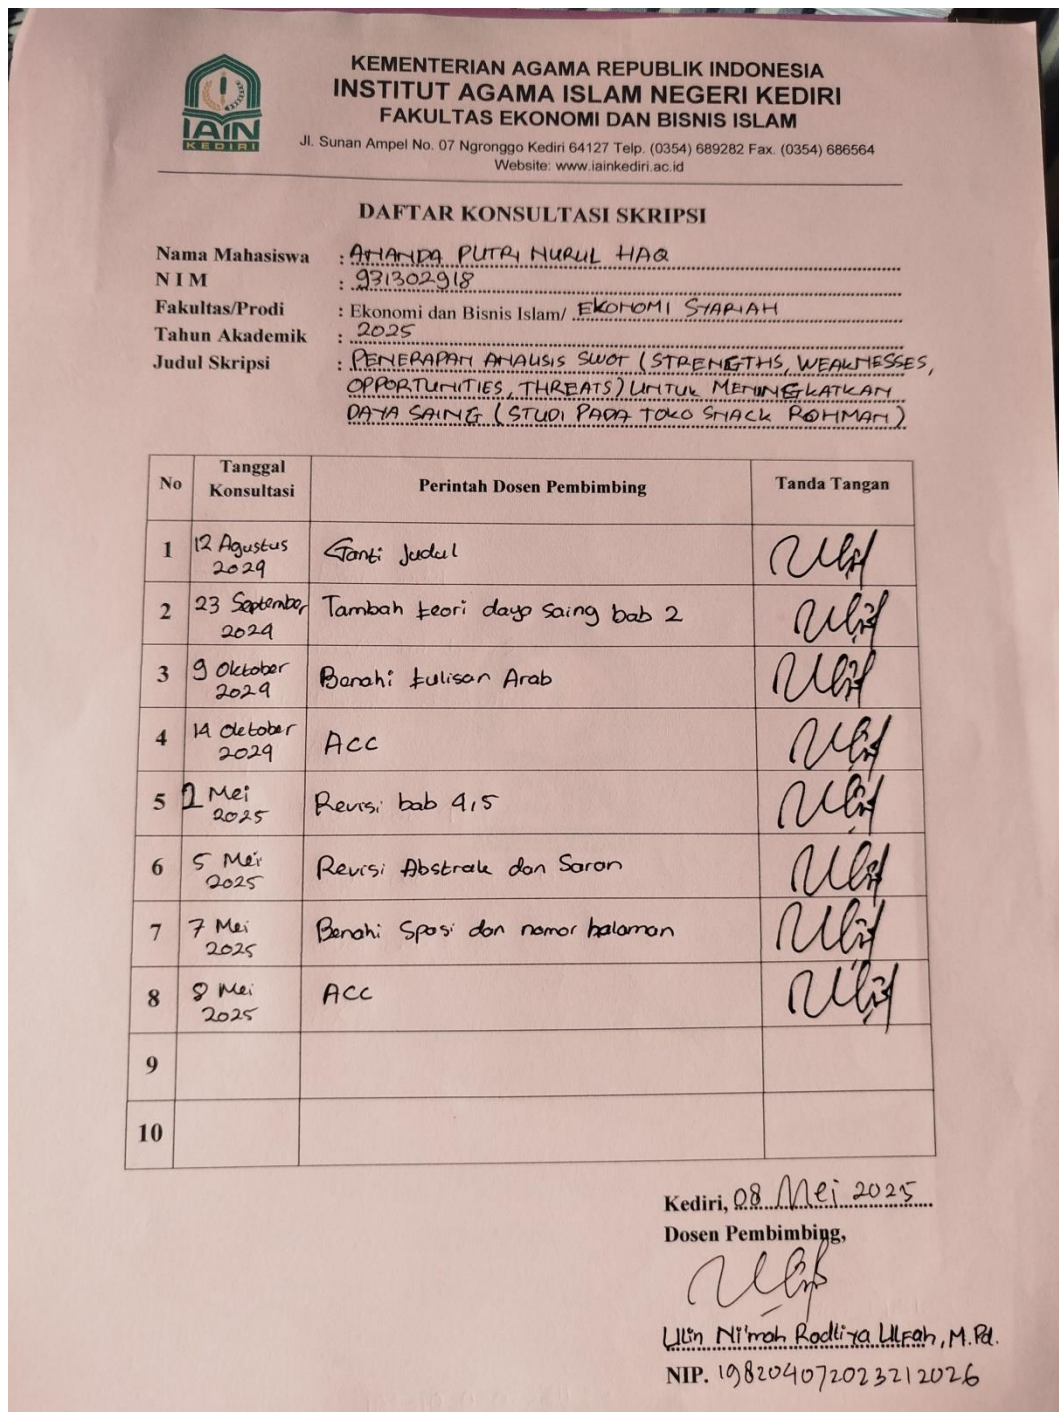 IAIN
KEDIRI
KEMENTERIAN AGAMA REPUBLIK INDONESIA
INSTITUT AGAMA ISLAM NEGERI KEDIRI
FAKULTAS EKONOMI DAN BISNIS ISLAM
Jl. Sunan Ampel No. 07 Ngronggo Kediri 64127 Telp. (0354) 689282 Fax. (0354) 686564
Website: www.iainkediri.ac.id
DAFTAR KONSULTASI SKRIPSI
Nama Mahasiswa : ANANDA PUTRI NURUL HAQ
N I M : 931302918
Fakultas/Prodi : Ekonomi dan Bisnis Islam/ EKONOMI SYARIAH
Tahun Akademik : 2025
Judul Skripsi : PENERAPAN ANALISIS SWOT (STRENGTHS, WEAKNESSES,
OPPORTUNITIES, THREATS) UNTUK MENINGKATKAN
DAYA SAING (STUDI PADA TOKO SNACK ROHMAN)
No Tanggal Konsultasi Perintah Dosen Pembimbing Tanda Tangan
1 12 Agustus 2024 Ganti Judul
2 23 September 2024 Tambah teori daya saing bab 2
3 9 Oktober 2024 Benahi tulisan Arab
4 14 Oktober 2024 ACC
5 2 Mei 2025 Revisi bab 4,5
6 5 Mei 2025 Revisi Abstrak dan Saran
7 7 Mei 2025 Benahi Spasi dan nomor halaman
8 8 Mei 2025 ACC
9
10
Kediri, 08 Mei 2025
Dosen Pembimbing,
Ulin Ni'mah Rodliya Ulfah, M.Pd.
NIP. 198204072023212026